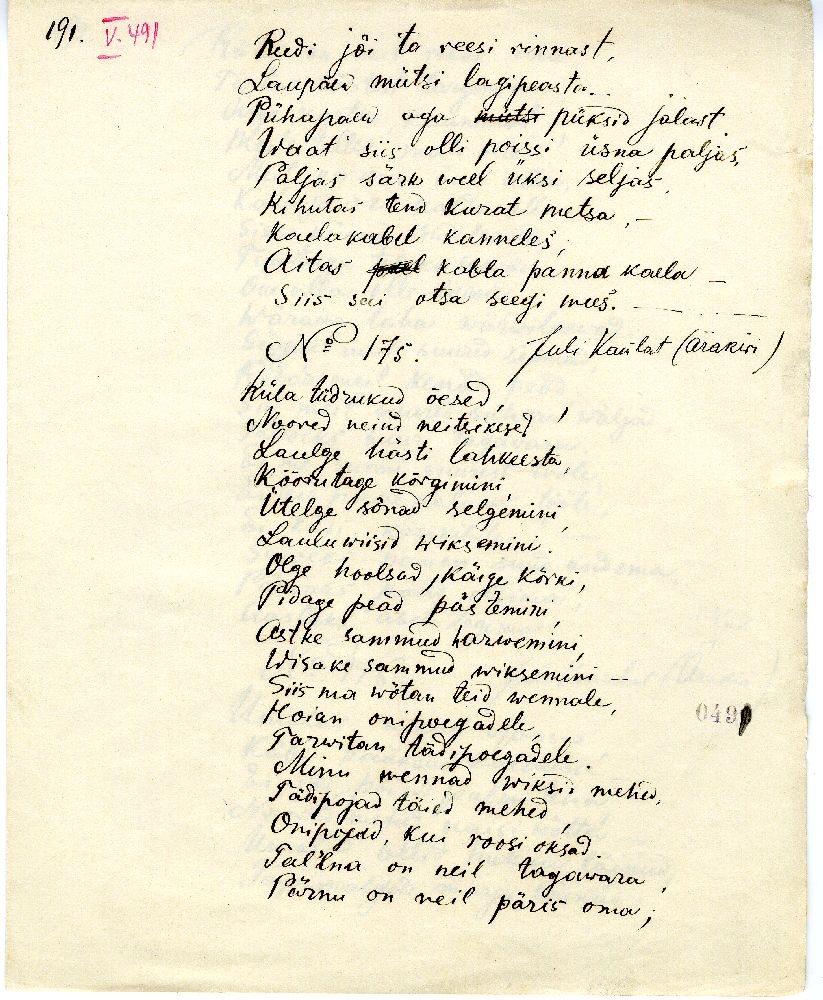 191. V. 491
Reedi jõi ta reesi rinnast,
Laupäew mütsi lagipeasta.
Pühapäew aga mütsi püksid jalust
Waat siis olli poissi üsna paljas,
Paljas särk weel üksi seljas,
Kihutas tend kurat metsa, –
Kaelakabel kanneles,
Aitas kabla panna kaela –
Siis sai otsa seegi mees.
No 175. Juli Kaulat (ärakiri)
Küla tüdrukud õesed,
Noored neiud neitsikesed
Laulge hästi lahkeesta,
Köörutage kõrgimini,
Ütelge sõnad selgemini,
Lauluwiisid wiksemini.
Olge hoolsad, käige kõrki,
Pidage pead püstemini,
Astke sammud harwemini,
Wisake sammud wiksemini –
Siis ma wõtan teid wennale,
Hoian onipoegadele,
Tarwitan tädipoegadele.
Minu wennad wiksid mehed,
Tädipojad täied mehed,
Onipojad, kui roosi oksad.
Tal'lna on neil tagawara,
Pärnu on neil päris oma;
049